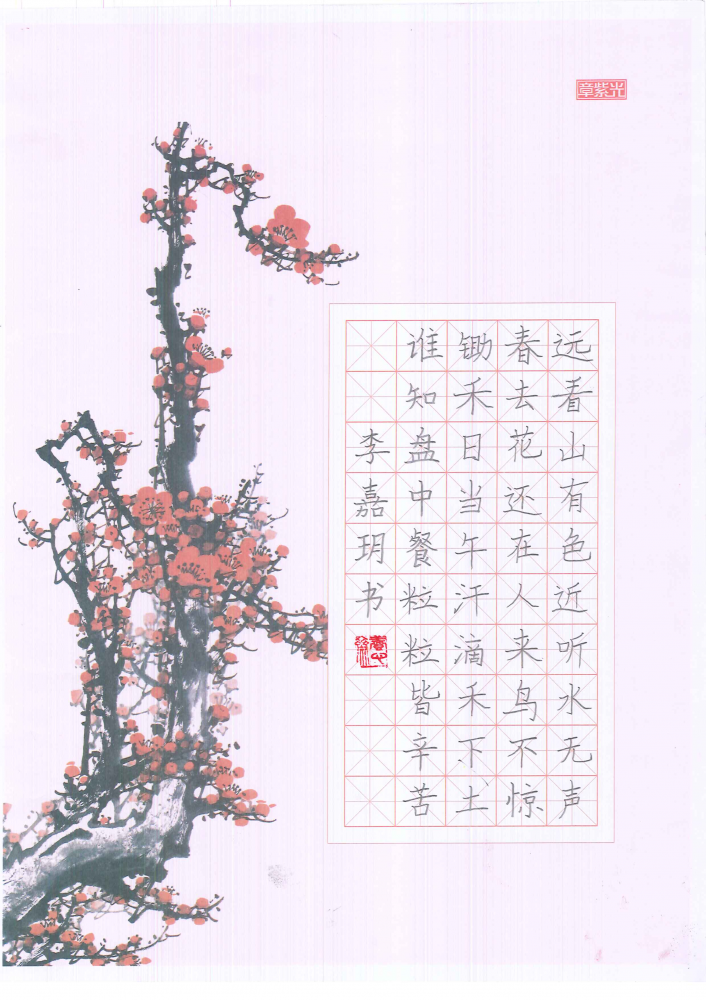 章紫光
远看山有色近听水无声
春去花还在人来鸟不惊
锄禾日当午汗滴禾下土
谁知盘中餐粒粒皆辛苦
李嘉玥书